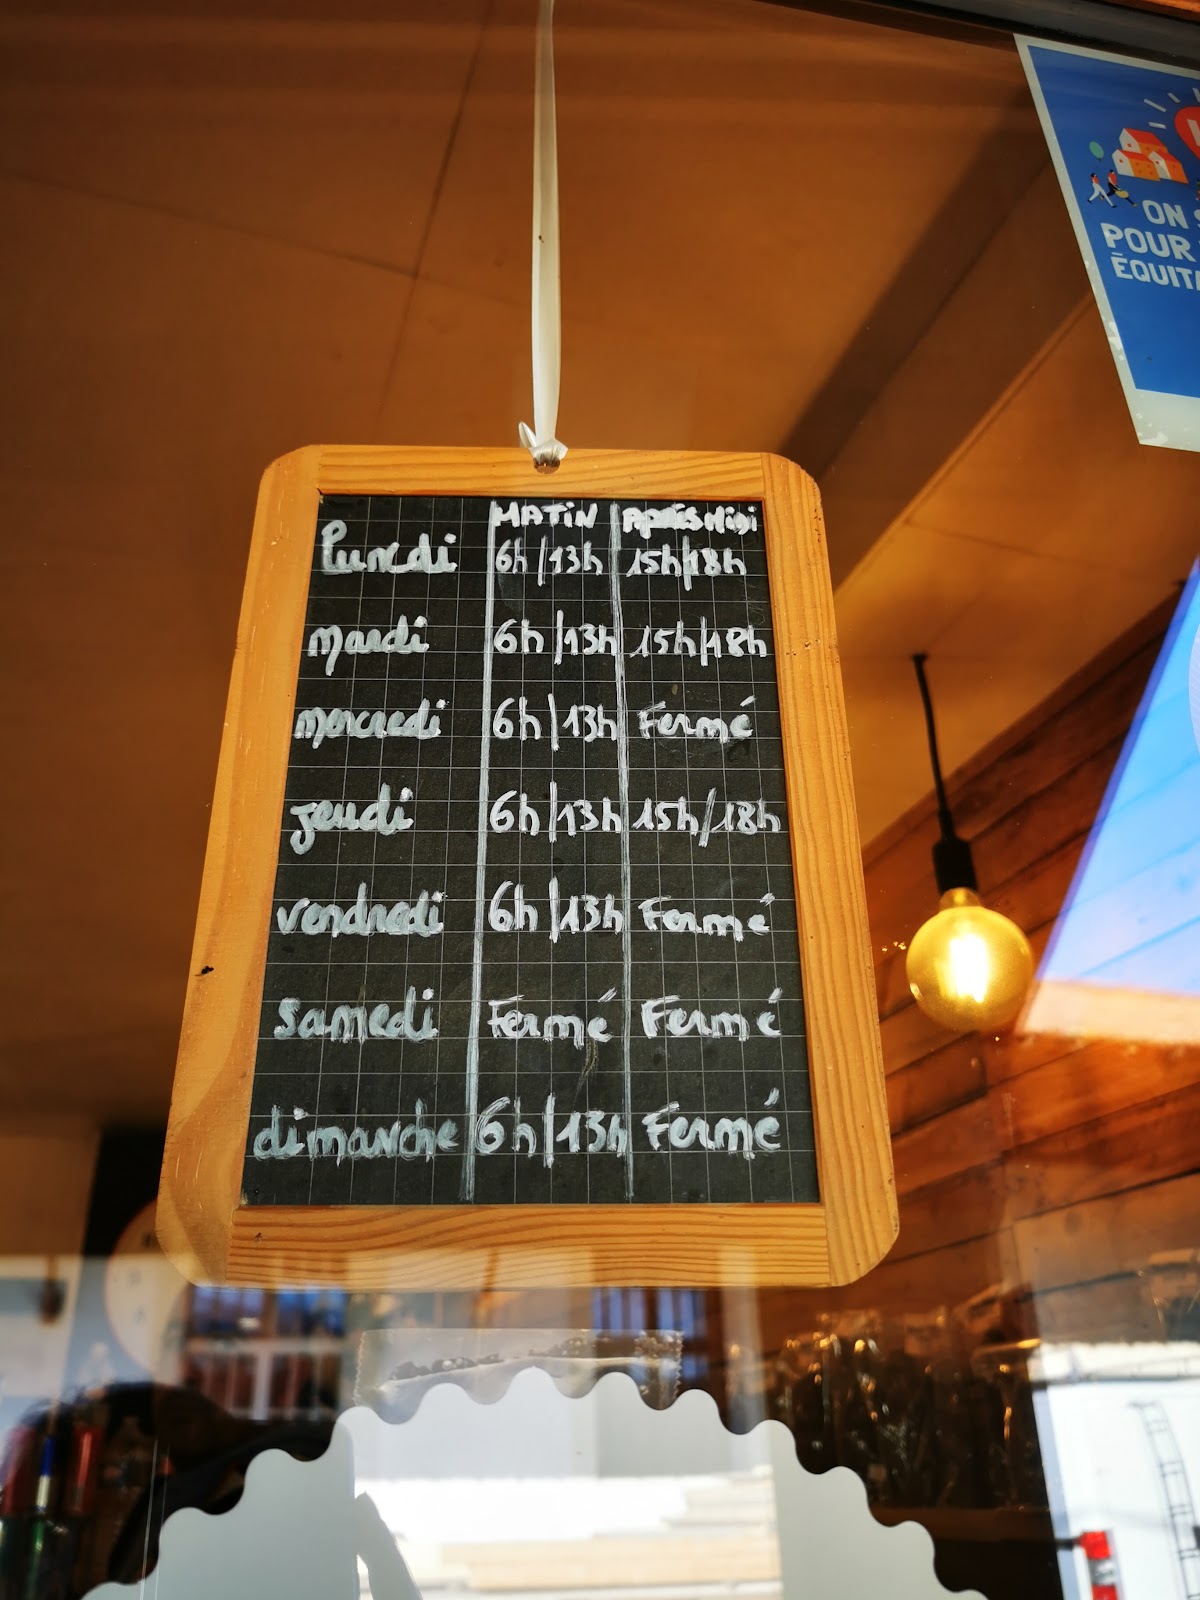 MATIN APRÈS MIDI
Lundi 6h/13h 15h/18h
mardi 6h/13h 15h/18h
mercredi 6h/13h Fermé
jeudi 6h/13h 15h/18h
vendredi 6h/13h Fermé
Samedi Fermé Fermé
dimanche 6h/13h Fermé
ON
POUR